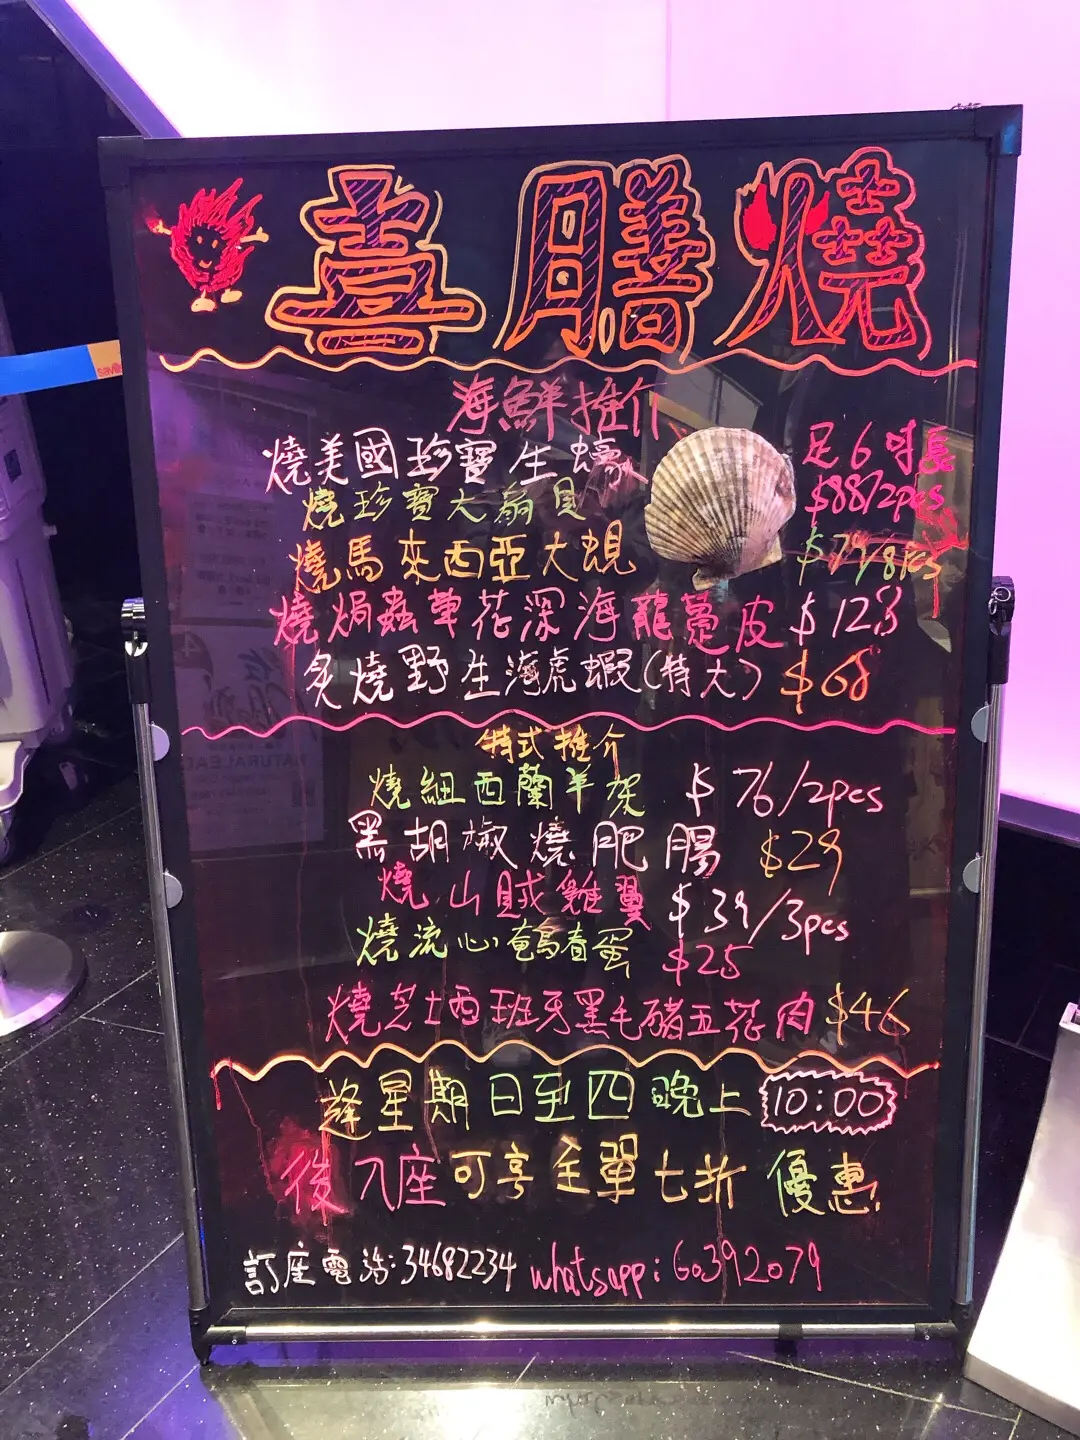 喜膳燒
海鮮推介
燒美國珍寶生蠔 足6吋長
$88/2pcs
燒珍寶大扇貝
燒馬來西亞大蜆 $79/8pcs
燒焗蟲草花深海龍躉皮 $128
炙燒野生海虎蝦(特大) $68
特式推介
燒紐西蘭羊架 $76/2pcs
黑胡椒燒肥腸 $29
燒山賊雞翼 $39/3pcs
燒流心鵪鶉蛋 $25
燒芝士西班牙黑毛豬五花肉 $46
逢星期日至四晚上 10:00
後入座可享全單七折優惠
訂座電話:34682234 whatsapp:60392079